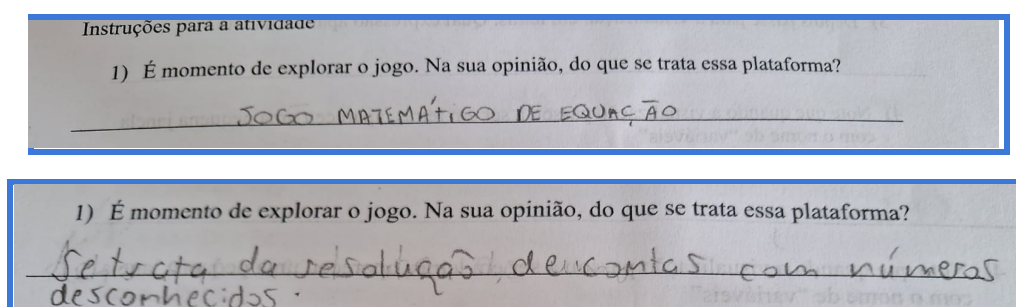 Instruções para a atividade
1) É momento de explorar o jogo. Na sua opinião, do que se trata essa plataforma?
JOGO MATEMÁTIGO DE EQUAÇÃO
1) É momento de explorar o jogo. Na sua opinião, do que se trata essa plataforma?
Se trata da resolução de contas com números
desconhecidos.